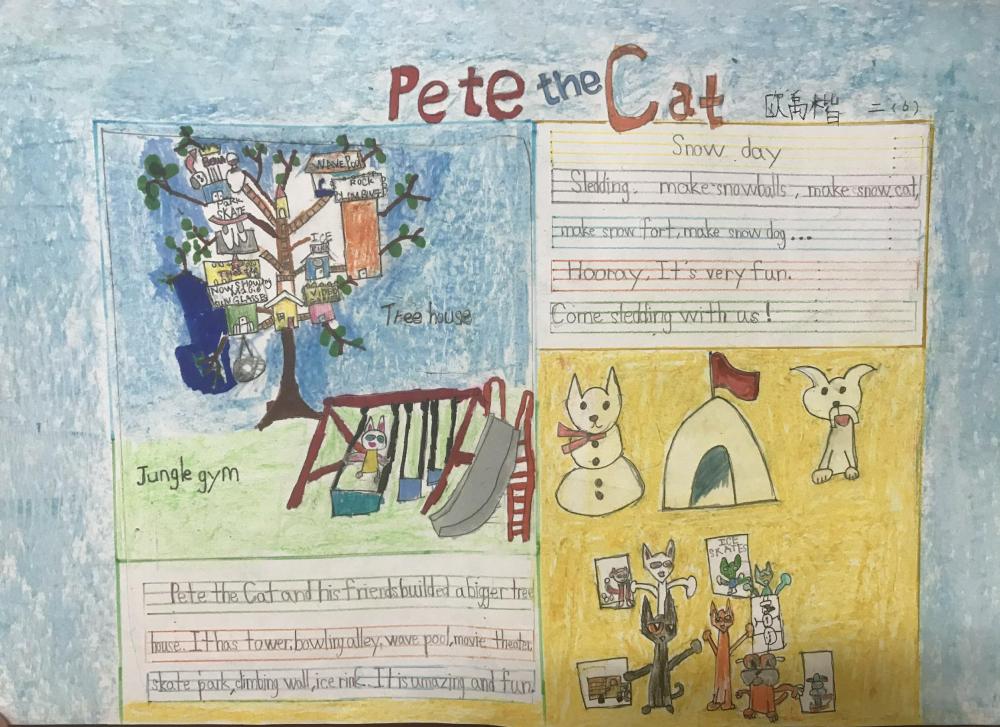 Pete the Cat
欧禹楷 二(6)
WAVE POOL
ROCK
CLIMBING
PARK
SKATE
ICE
RINK
NOW SHOWING
Tree house
Jungle gym
Pete the Cat and his friends builded a bigger tree
house. It has tower, bowling alley, wave pool, movie theater,
skate park, climbing wall, ice rink. It is amazing and fun.
Snow day
Sledding. make snowballs, make snow cat,
make snow fort, make snow dog...
Hooray, It's very fun.
Come sledding with us!
ICE
SKATES